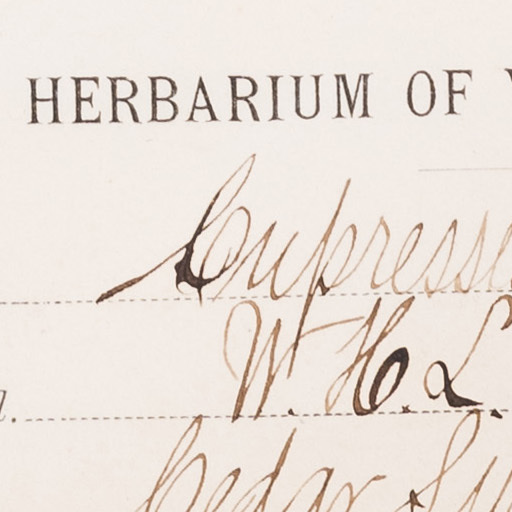 HERBARIUM OF
Cupresse
W. H. L.
Cedar